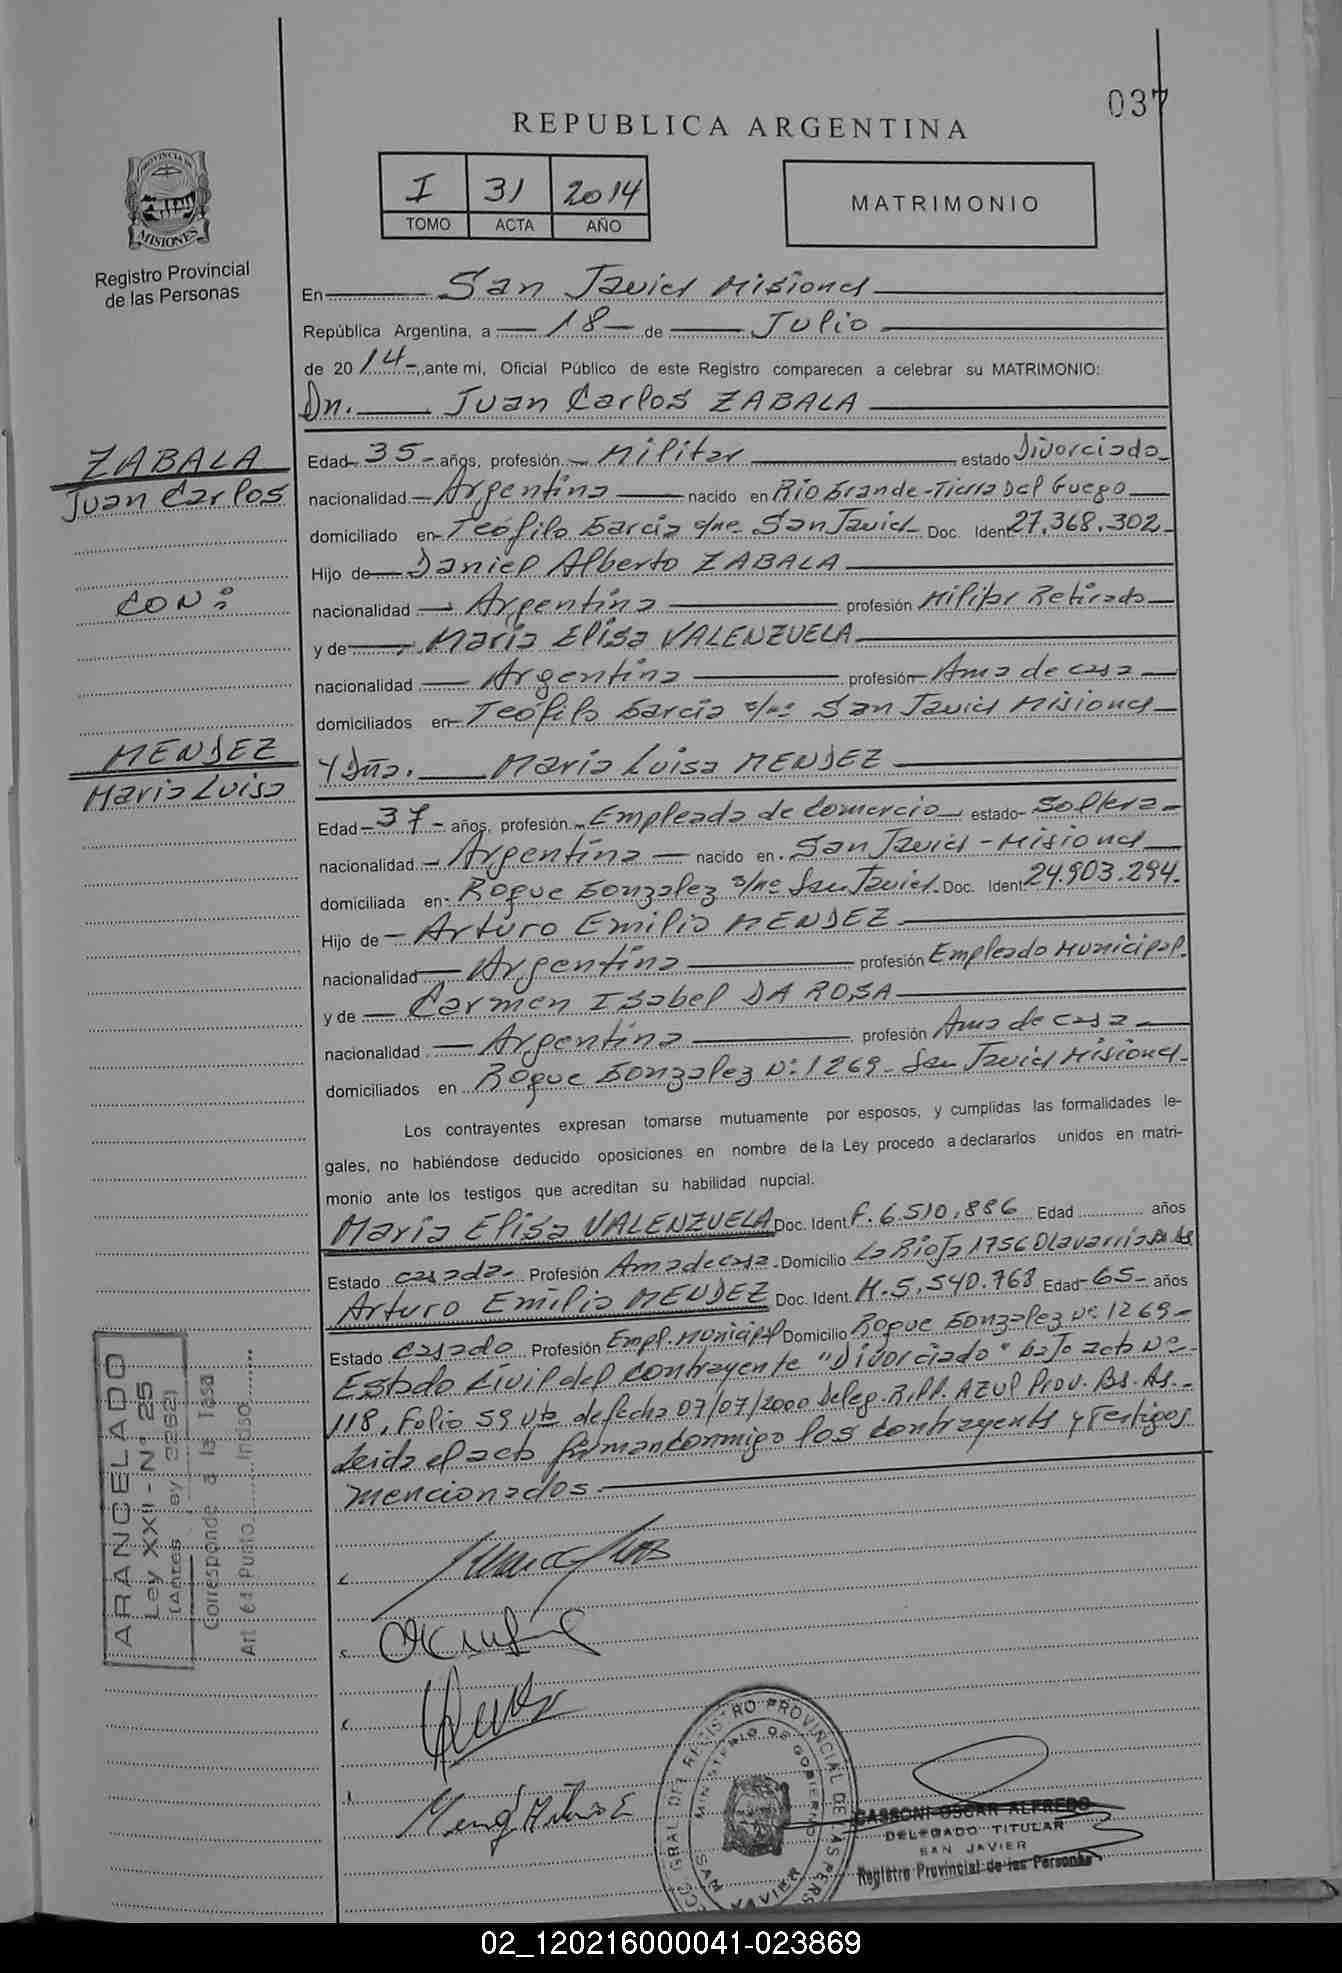 037
REPUBLICA ARGENTINA
I 31 2014
TOMO ACTA AÑO
MATRIMONIO
PROVINCIA DE
MISIONES
Registro Provincial
de las Personas
En San Javier Misiones
República Argentina, a 18 de Julio
de 2014, ante mi, Oficial Público de este Registro comparecen a celebrar su MATRIMONIO:
Dn. Juan Carlos ZABALA
ZABALA
Juan Carlos
CON:
MENDEZ
Maria Luisa
Edad 35 años, profesión Militar estado Divorciado
nacionalidad Argentina nacido en Rio Grande-Tierra Del Fuego
domiciliado en Teófilo Garcia s/nº San Javier Doc. Ident 27.368.302
Hijo de Daniel Alberto ZABALA
nacionalidad Argentina profesión Militar Retirado
y de Maria Elisa VALENZUELA
nacionalidad Argentina profesión Ama de casa
domiciliados en Teófilo Garcia s/nº San Javier Misiones
Y Dña. Maria Luisa MENDEZ
Edad 37 años, profesión Empleada de Comercio estado Soltera
nacionalidad Argentina nacido en San Javier - Misiones
domiciliada en Roque Gonzalez s/nº San Javier Doc. Ident 24.903.294.
Hijo de Arturo Emilio MENDEZ
nacionalidad Argentina profesión Empleado Municipal.
y de Carmen Isabel DA ROSA
nacionalidad Argentina profesión Ama de casa
domiciliados en Roque Gonzalez Nº: 1269 - San Javier Misiones.
Los contrayentes expresan tomarse mutuamente por esposos, y cumplidas las formalidades le-
gales, no habiéndose deducido oposiciones en nombre de la Ley procedo a declararlos unidos en matri-
monio ante los testigos que acreditan su habilidad nupcial.
Maria Elisa VALENZUELA Doc. Ident. F. 6.510.886 Edad años
Estado casada Profesión Ama de casa Domicilio La Rioja 1756 Olavarria Bs As
Arturo Emilio MENDEZ Doc. Ident. M. 5.540.768 Edad 65 años
Estado casado Profesión Empl. Municipal Domicilio Roque Gonzalez Nº: 1269
Estado Civil del contrayente "Divorciado" bajo acta Nº
118, Folio 59 Vta de fecha 07/07/2000 Deleg. R.P.P. AZUL Prov. Bs. As.
Leida el acta firman conmigo los contrayentes y Testigos
mencionados.
ARANCELADO
Ley XXII - Nº 25
(Antes Ley 3262)
Corresponde a la Tasa
Art. 61 Punto Inciso
REGISTRO PROVINCIAL DE LAS PERS
MINISTERIO DE GOBIERNO
SAN JAVIER
CASSONI OSCAR ALFREDO
DELEGADO TITULAR
SAN JAVIER
Registro Provincial de las Personas
02_120216000041-023869